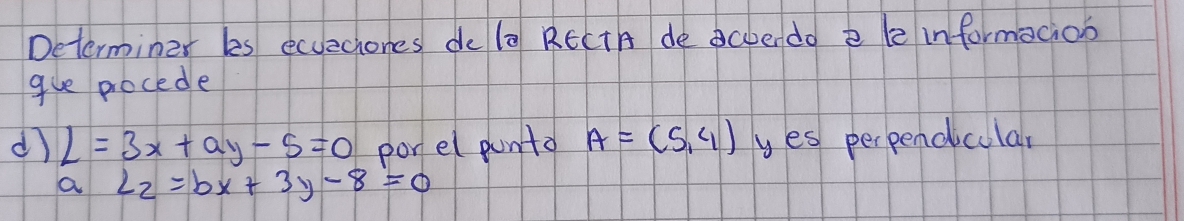 Determinar las ecuaciones de la RECTA de acuerdo a la información
que procede
d) L = 3x + ay - 5 = 0 por el punto A = (5,4) y es perpendicular
a L2 = bx + 3y - 8 = 0